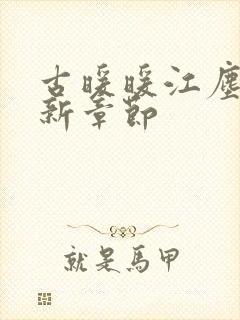 古暖暖江塵
新章節
就是馬甲